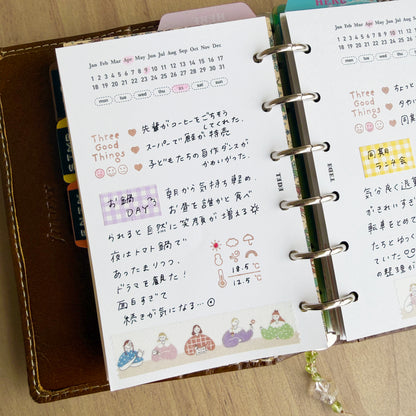 Jan Feb Mar Apr May Jun Jul Aug Sep Oct Nov Dec
1 2 3 4 5 6 7 8 9 10 11 12 13 14 15 16 17
18 19 20 21 22 23 24 25 26 27 28 29 30 31
mon tue wed thu fri sat sun
Three Good Things
先輩がコーヒーをごちそう
してくれた。
スーパーで
子どもたちの自作ダンスが
かわいかった。
お鍋
DAY
朝から気持ち軽め。
お昼を誰かと食べ
られると自然に笑顔が増える
夜はトマト鍋で
あったまりつつ、
ドラマを観た!
面白すぎて
続きが気になる…
18.5℃
12.5℃
Jan Feb Mar Apr May Jun Jul
1 2 3 4 5 6 7 8 9 10
18 19 20 21 22 23 24 25 26
mon tue wed thu
Three Good Things
ちょっと
同期の
ランチ会
気分良く
転車をとめ
たちとゆっく
ていた
の整理が